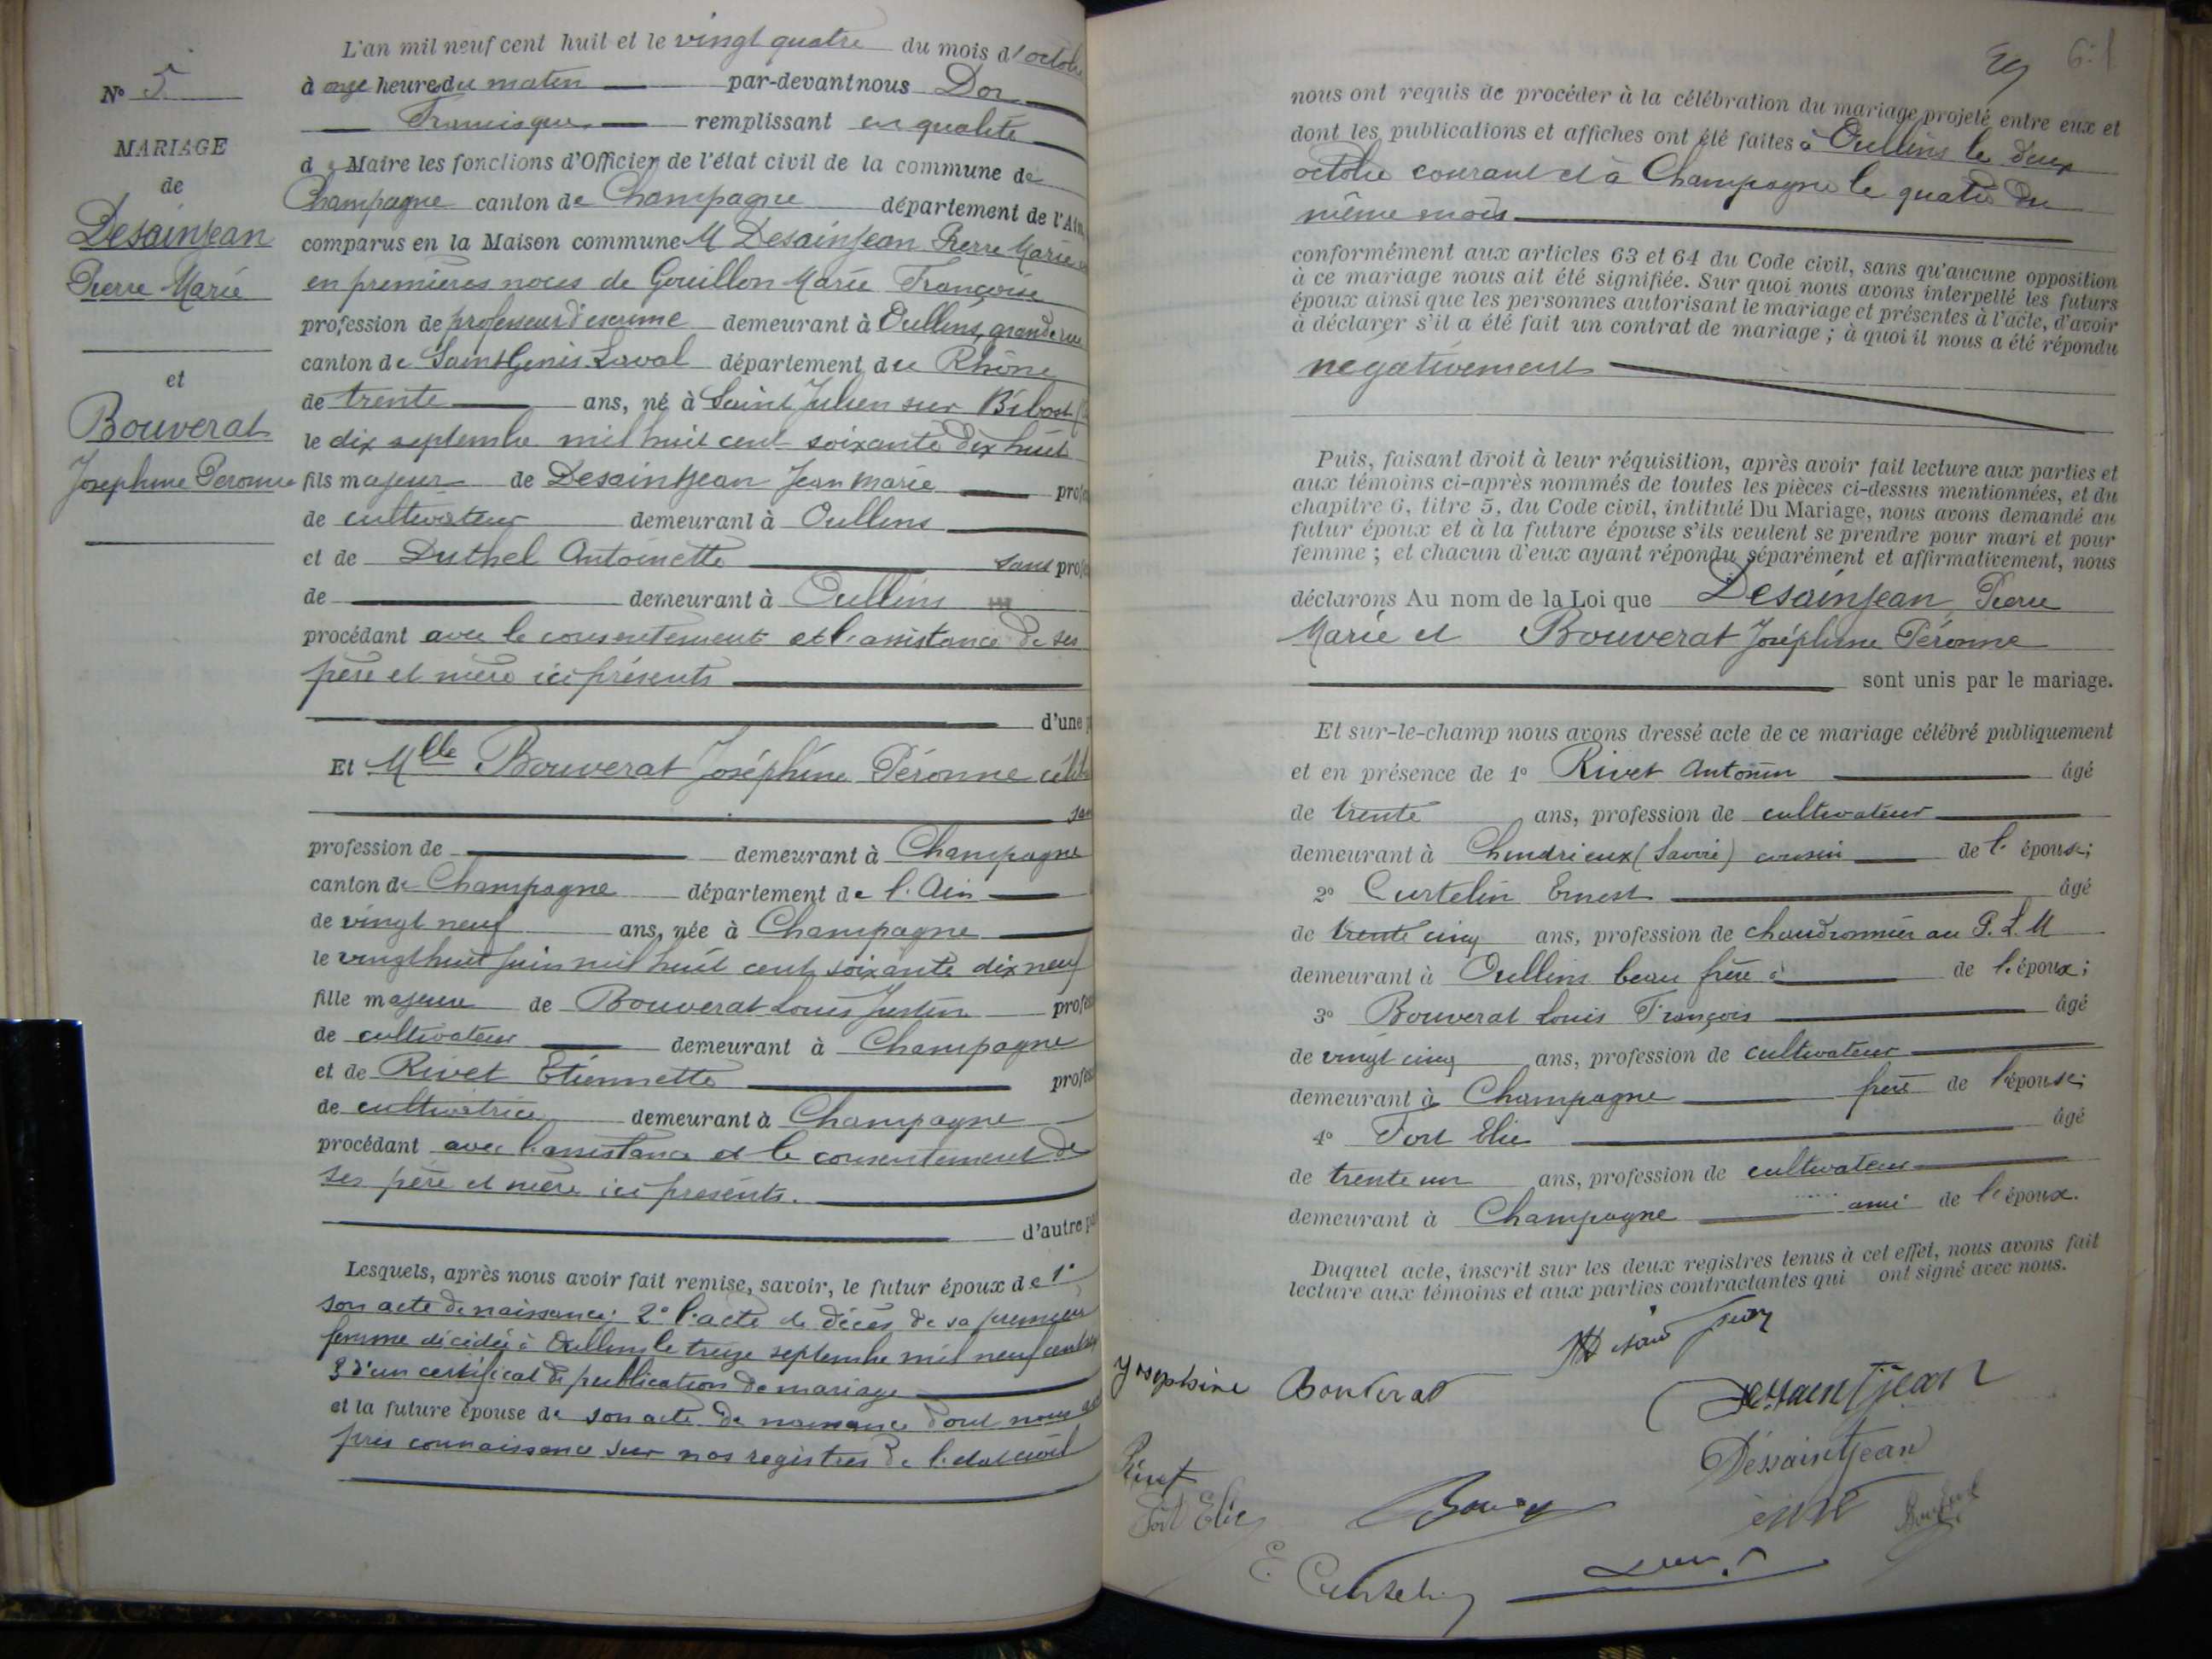 N° 5
MARIAGE
de
Desainjean
Pierre Marie
et
Bouverat
Josephine Peronne
L'an mil neuf cent huit et le vingt quatre du mois d'octobre
à onze heures du matin par-devant nous Dor
Francisque remplissant en qualité
de Maire les fonctions d'Officier de l'état civil de la commune de
Champagne canton de Champagne département de l'Ain,
comparus en la Maison commune M Desainjean Pierre Marie
en premières noces de Gouillon Marie Françoise
profession de professeur d'escrime demeurant à Oullins, grande rue
canton de Saint Genis Laval département du Rhône
de trente ans, né à Saint Julien sur Bibost
le dix septembre mil huit cent soixante dix huit
fils majeur de Desaintjean Jean Marie profes
de cultivateur demeurant à Oullins
et de Duthel Antoinette sans profes
de demeurant à Oullins
procédant avec le consentement et l'assistance de ses
père et mère ici présents
d'une p
Et Mlle Bouverat Joséphine Péronne célib
san
profession de demeurant à Champagne
canton de Champagne département de l'Ain
de vingt neuf ans, née à Champagne
le vingt huit juin mil huit cent soixante dix neuf
fille majeure de Bouverat Louis Justin profes
de cultivateur demeurant à Champagne
et de Rivet Etiennette profes
de cultivatrice demeurant à Champagne
procédant avec l'assistance et le consentement de
ses père et mère ici présents.
d'autre pa
Lesquels, après nous avoir fait remise, savoir, le futur époux de 1°
son acte de naissance; 2° l'acte de décès de sa première
femme décédée à Oullins le treize septembre mil neuf cent
3° d'un certificat de publication de mariage
et la future épouse de son acte de naissance dont nous
pris connaissance sur nos registres de l'état civil
61
nous ont requis de procéder à la célébration du mariage projeté entre eux et
dont les publications et affiches ont été faites à Oullins le deux
octobre courant et à Champagne le quatre du
même mois
conformément aux articles 63 et 64 du Code civil, sans qu'aucune opposition
à ce mariage nous ait été signifiée. Sur quoi nous avons interpellé les futurs
époux ainsi que les personnes autorisant le mariage et présentes à l'acte, d'avoir
à déclarer s'il a été fait un contrat de mariage ; à quoi il nous a été répondu
négativement
Puis, faisant droit à leur réquisition, après avoir fait lecture aux parties et
aux témoins ci-après nommés de toutes les pièces ci-dessus mentionnées, et du
chapitre 6, titre 5, du Code civil, intitulé Du Mariage, nous avons demandé au
futur époux et à la future épouse s'ils veulent se prendre pour mari et pour
femme ; et chacun d'eux ayant répondu séparément et affirmativement, nous
déclarons Au nom de la Loi que Desainjean Pierre
Marie et Bouverat Joséphine Péronne
sont unis par le mariage.
Et sur-le-champ nous avons dressé acte de ce mariage célébré publiquement
et en présence de 1° Rivet Antonin âgé
de trente ans, profession de cultivateur
demeurant à Chindrieux (Savoie) cousin de l'épouse;
2° Curtelin Ernest âgé
de trente cinq ans, profession de chaudronnier au P.L.M
demeurant à Oullins beau frère de l'époux;
3° Bouverat Louis François âgé
de vingt cinq ans, profession de cultivateur
demeurant à Champagne frère de l'épouse;
4° Fort Elie âgé
de trente un ans, profession de cultivateur
demeurant à Champagne ami de l'époux.
Duquel acte, inscrit sur les deux registres tenus à cet effet, nous avons fait
lecture aux témoins et aux parties contractantes qui ont signé avec nous.
Josephine Bouverat
Dessaintjean
Déssaintjean
Rivet
Fort Elie
E. Curtelin